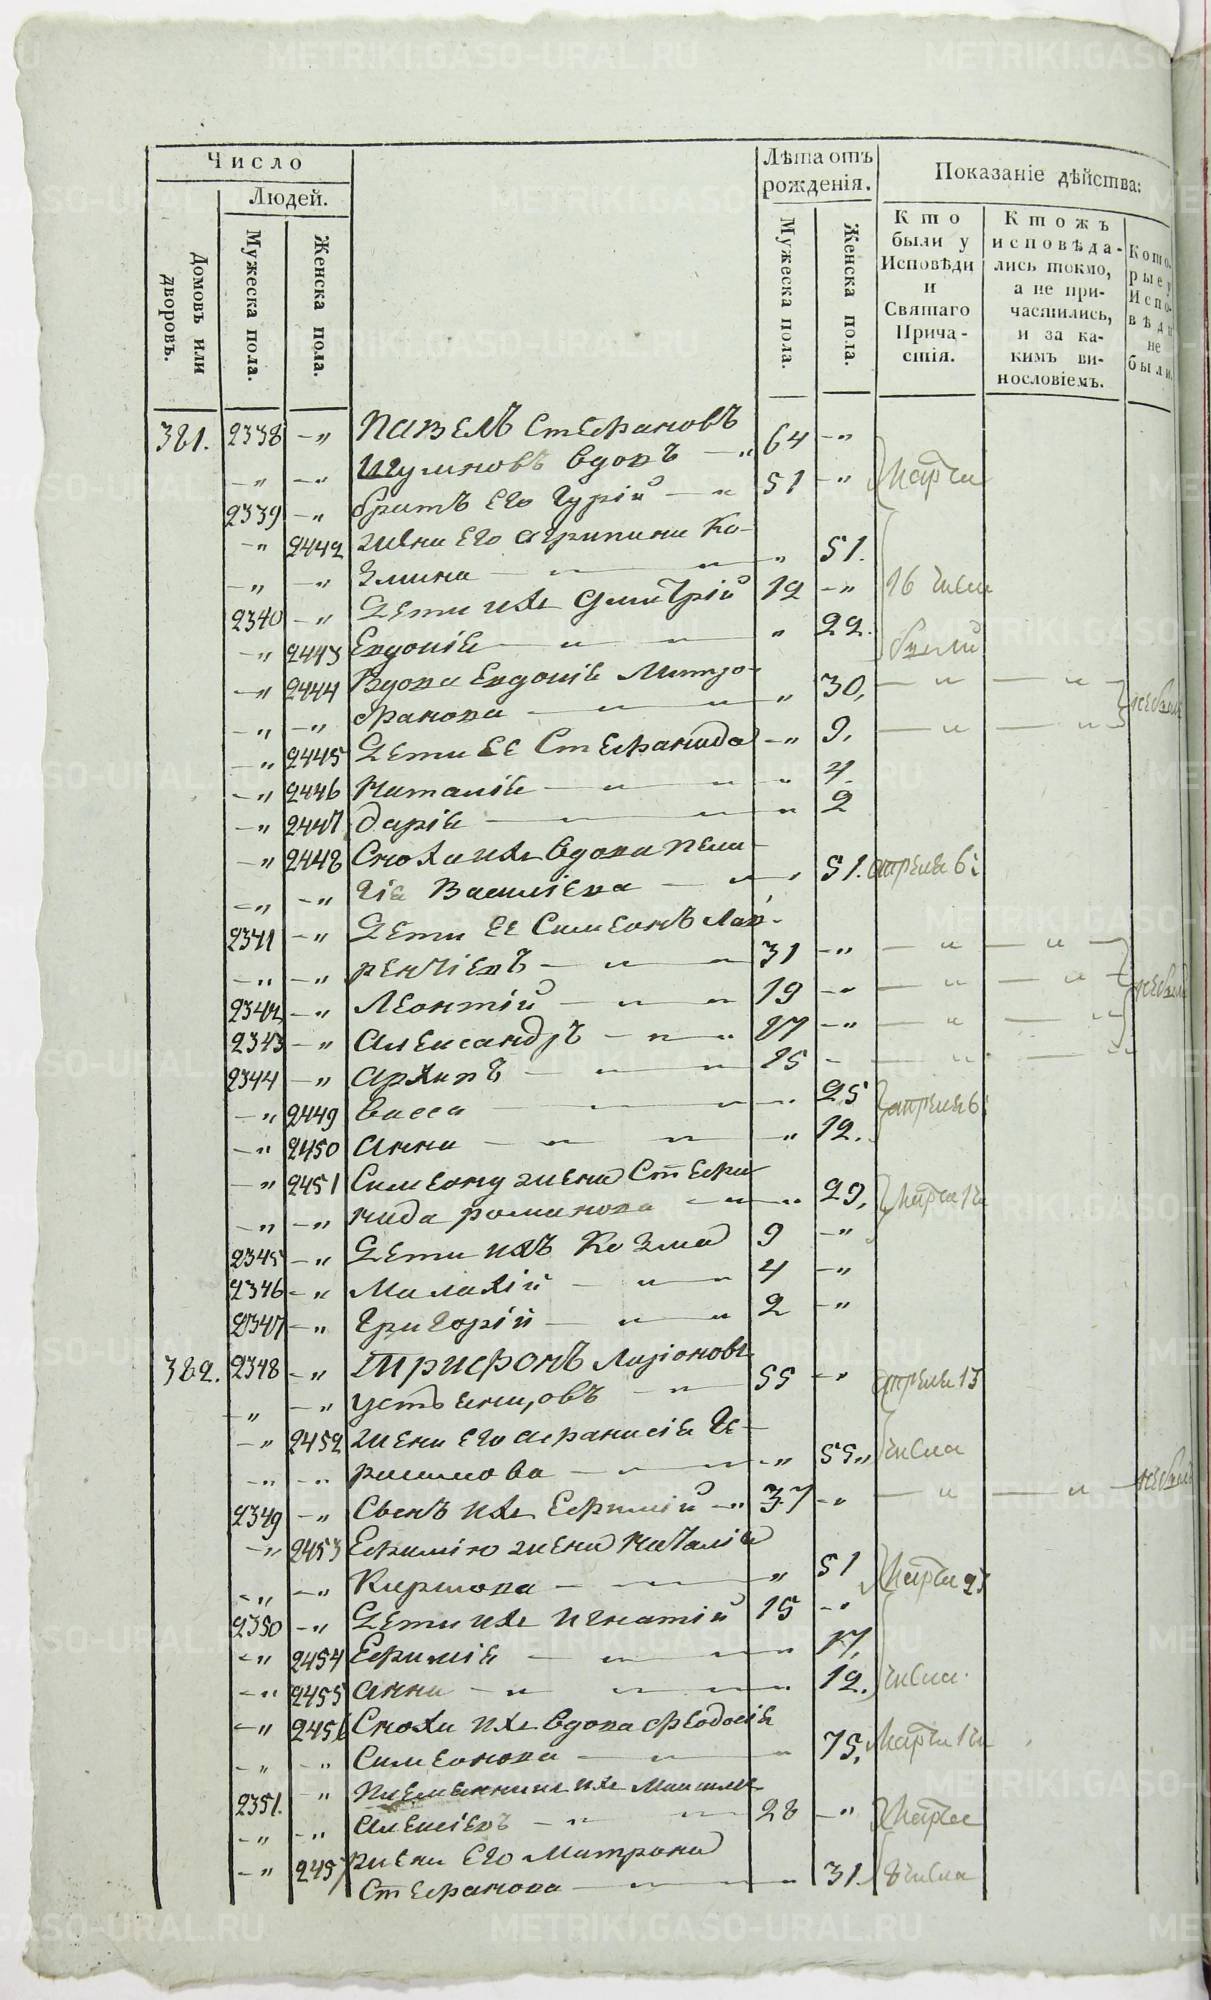 Число
Людей.
Домовъ или дворовъ.
Мужеска пола.
Женска пола.
Лѣта отъ рожденія.
Мужеска пола.
Женска пола.
Показаніе дѣйства:
Кто были у Исповѣди и Святаго Причастія.
Ктожъ исповѣдались токмо, а не причастились, и за какимъ винословіемъ.
Которые у Исповѣди не были.
381. 2338 —„ Павелъ Стефановъ
—„ —„ вдовъ —„ 64 —„
2339 —„ братъ его Гурій —„ 51 —„ Марта
—„ 2442 жена его Агрипина Ко-
—„ —„ змина — „ 51.
2340 —„ Дети ихъ Димитрій 12 —„ 16 числа
—„ 2443 Евдокіе — „ 22. были
—„ 2444 Вдова Евдокіе Митро-
—„ —„ фанова — „ 30, не были
—„ 2445 Дети ее Стефанида —„ 9,
—„ 2446 Наталіе — „ 4.
—„ 2447 Даріе — „ 2
—„ 2448 Сноха ихъ вдова Пела-
—„ —„ гіе Василіева — „ 51. апреля 6:
2341 —„ Дети ее Симеонъ Лав-
—„ —„ рентіевъ — 31 —„
2342 —„ Леонтій — 19 —„ не были
2343 —„ Александръ — 17 —„
2344 —„ Архипъ — 15 —
—„ 2449 Васса — „ 25 апреля 6:
—„ 2450 Анна — „ 12.
—„ 2451 Симеону жена Стефа
—„ —„ нида Романова — „ 29, Марта
2345 —„ Дети ихъ Козма 9 —„
2346 —„ Малахій — 4 —„
2347 —„ Григорій — 2 —„
382. 2348 —„ Трифонъ Ларіоновъ
—„ —„ Устьянцовъ — 55 —„ апреля 13
—„ 2452 жена его Афанасіе Ге-
—„ —„ расимова — „ 55„ числа
2349 —„ Сынъ ихъ Ефимій —„ 37 —„ не были
—„ 2453 Ефимію жена Наталіе
—„ —„ Кирилова — „ 51 Марта 23
2350 —„ Дети ихъ Игнатій 15 —„
—„ 2454 Ефиміе — „ 17,
—„ 2455 Анна — „ 12. числа.
—„ 2456 Сноха ихъ вдова Феодосіе
—„ —„ Симеонова — „ 75, Марта
2351. —„ Племянникъ ихъ
—„ —„ Алексіевъ — 28 —„ Марта
—„ 2457 жена его Матрона
Стефанова — „ 31. 8 числа
METRIKI.GASO-URAL.RU